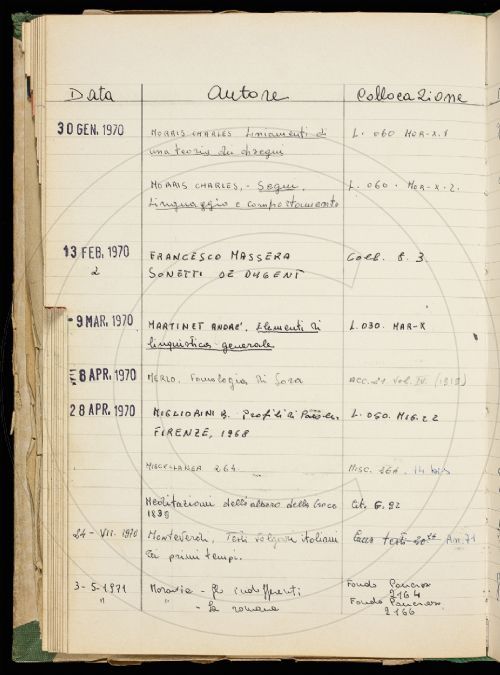 Data Autore Collocazione
30 GEN. 1970 MORRIS CHARLES Liniamenti di L. 060 MOR-X.1
una teoria dei segni
MORRIS CHARLES, - Segni, L. 060. MOR-X-2.
Linguaggio e comportamento
13 FEB. 1970 FRANCESCO MASSERA Coll. 8. 3
2 SONETTI DE DUGENT
-9 MAR. 1970 MARTINET ANDRE', Elementi di L. 030. MAR-X
linguistica generale
8 APR. 1970 MERLO, Fonologia di Sora ACC. 21 Vol. IV. (1919)
28 APR. 1970 MIGLIORINI B. Profili di Parole L. 050. MIG. 22
FIRENZE, 1968
MISCELLANEA 264 MISC. 264. 14 bis
Meditazioni dell'albero della Croce Cit. G. 92
1839
24-VII-1970 Monteverdi, Testi volgari italiani An.71
dei primi tempi.
3-5-1971 Moravia - Gli indifferenti Fondo Pancrazi
2164
" - La romana Fondo Pancrazi
2166